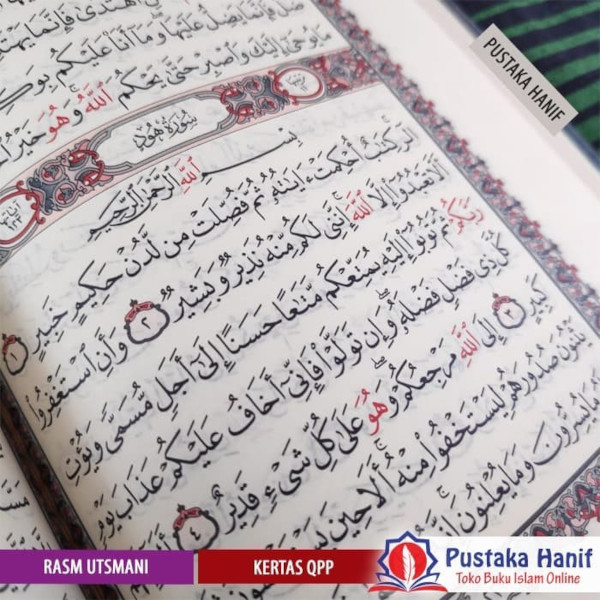 اهْتَدَىٰ فَإِنَّمَا
ضَلَّ فَإِنَّمَا يَضِلُّ عَلَيْهَا ۖ وَمَا أَنَا۠ عَلَيْكُم
مَا يُوحَىٰ إِلَيْكَ وَاصْبِرْ حَتَّىٰ يَحْكُمَ اللَّهُ ۚ وَهُوَ خَيْرُ
PUSTAKA HANIF
سُورَةُ هُودٍ
بِسْمِ اللَّهِ الرَّحْمَٰنِ الرَّحِيمِ
الٓر ۚ كِتَٰبٌ أُحْكِمَتْ ءَايَٰتُهُۥ ثُمَّ فُصِّلَتْ مِن لَّدُنْ حَكِيمٍ خَبِيرٍ ١
أَلَّا تَعْبُدُوٓا۟ إِلَّا اللَّهَ ۚ إِنَّنِى لَكُم مِّنْهُ نَذِيرٌ وَبَشِيرٌ ٢ وَأَنِ اسْتَغْفِرُوا۟
رَبَّكُمْ ثُمَّ تُوبُوٓا۟ إِلَيْهِ يُمَتِّعْكُم مَّتَٰعًا حَسَنًا إِلَىٰٓ أَجَلٍ مُّسَمًّى وَيُؤْتِ
كُلَّ ذِى فَضْلٍ فَضْلَهُۥ ۖ وَإِن تَوَلَّوْا۟ فَإِنِّىٓ أَخَافُ عَلَيْكُمْ عَذَابَ
كَبِيرٍ ٣ إِلَى اللَّهِ مَرْجِعُكُمْ ۖ وَهُوَ عَلَىٰ كُلِّ شَىْءٍ قَدِيرٌ ٤
صُدُورَهُمْ لِيَسْتَخْفُوا۟ مِنْهُ ۚ أَلَا حِينَ
يُسِرُّونَ وَمَا يُعْلِنُونَ ۚ
RASM UTSMANI
KERTAS QPP
Pustaka Hanif
Toko Buku Islam Online